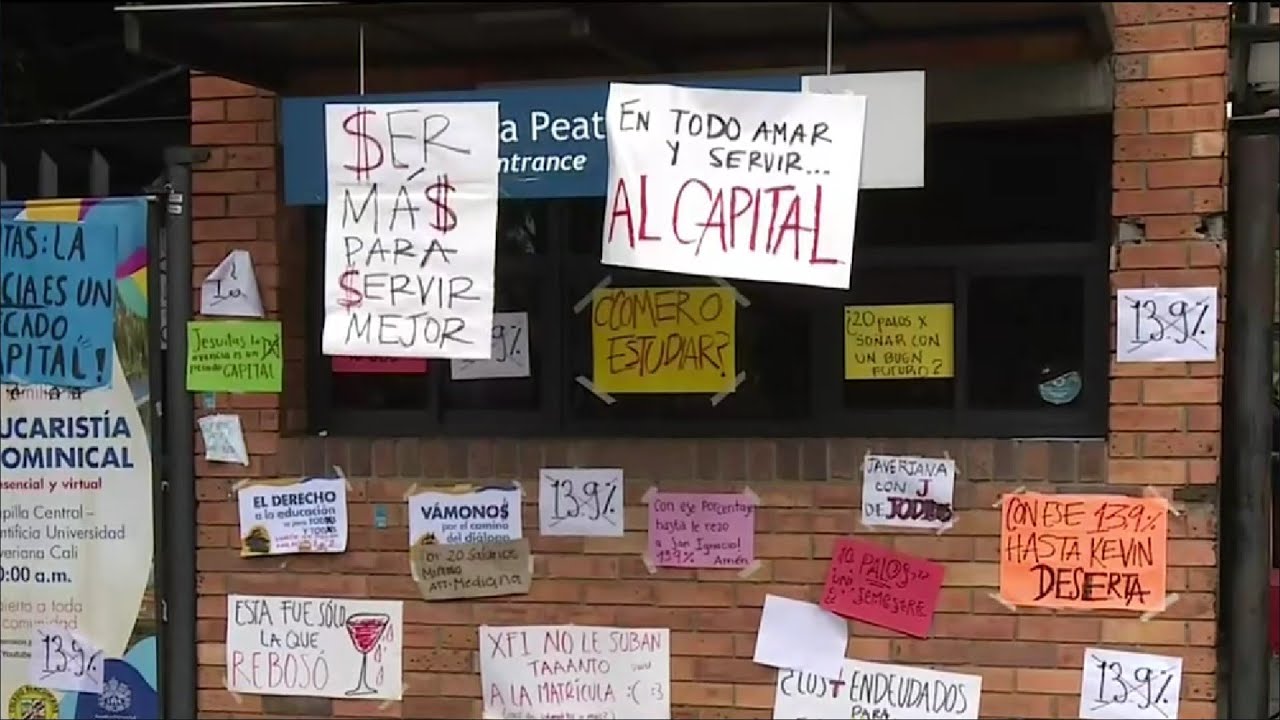 $ER
MÁ$
PARA
$ERVIR
MEJOR
EN TODO AMAR
Y SERVIR...
AL CAPITAL
a Peat
ntrance
TAS: LA
CIA ES UN
CADO
CAPITAL!
Jesuitas la
es un
CAPITAL
9%
¿COMER O
ESTUDIAR?
¿20 PALOS X
SOÑAR CON
UN BUEN
FUTURO?
13.9%
UCARISTÍA
OMINICAL
sencial y virtual
pilla Central –
ntificia Universidad
veriana Cali
0:00 a.m.
ierto a toda
comunidad
Youtube
13.9%
EL DERECHO
a la educación
es para TODOS
Y TODAS
VÁMONO$
por el camino
del diálogo
20 Salarios
Att: Medicina
13.9%
Con ese Porcentaje
hasta le rezo
a San Ignacio!
13.9% Amén
JAVERIANA
CON J
DE JODIDOS
CON ESE 13.9%
HASTA KEVIN
DESERTA
10 PALOS
SEMESTRE
ESTA FUE SÓLO
LA QUE
REBOSÓ
XFI NO LE SUBAN
TAAANTO
A LA MATRÍCULA :( :3
ENDEUDADOS
PARA
13.9%